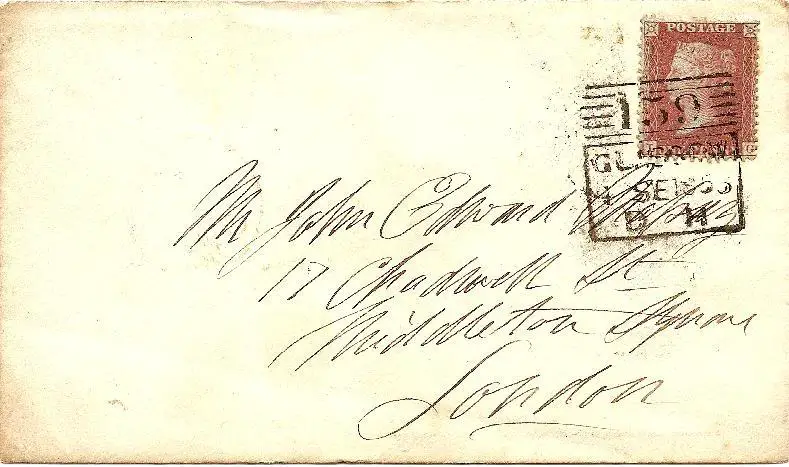 POSTAGE
159
GLASGOW
Mr John Edward
17 Chadwell St
Middleton Square
London